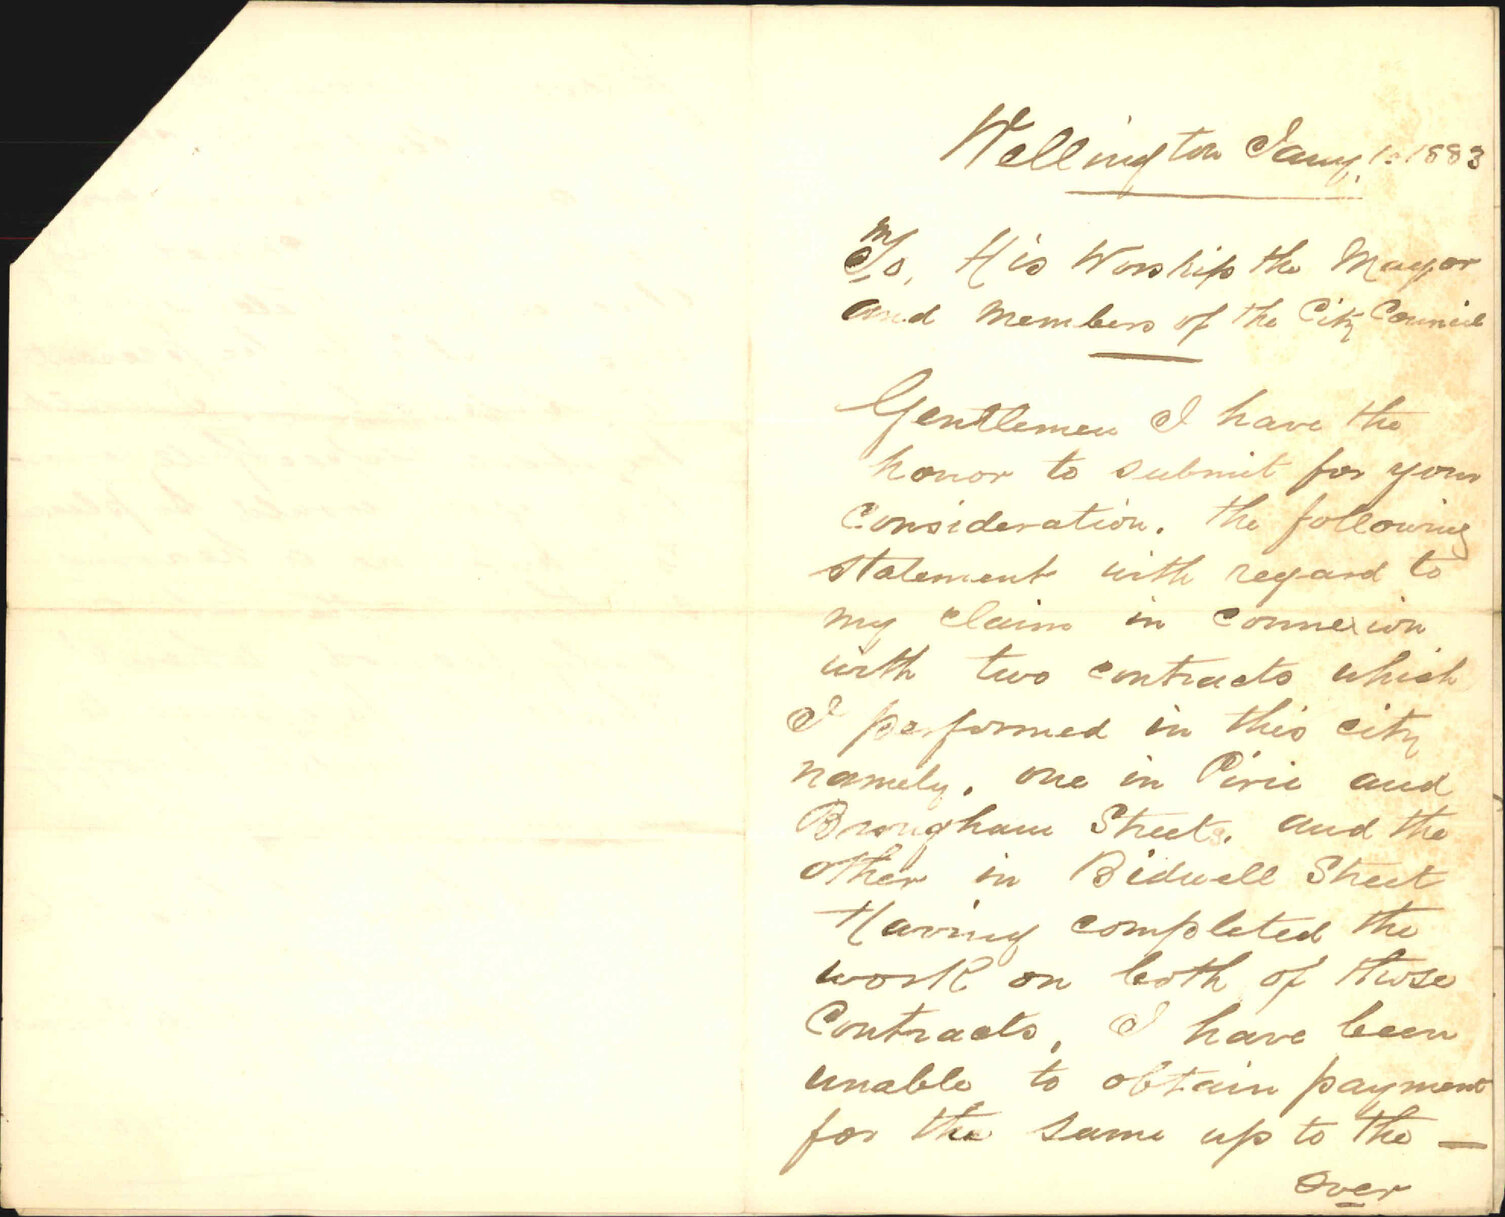 Wellington Jany. 1. 1883
To, His Worship the Mayor
and Members of the City Council
Gentlemen I have the
honor to submit for your
Consideration. the following
statement with regard to
my claim in connexion
with two contracts which
I performed in this city
namely. one in Pirie and
Brougham Streets. and the
other in Bidwell Street
Having completed the
work on both of those
Contracts, I have been
unable to obtain payment
for the same up to the —
Over